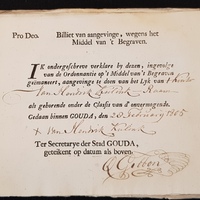 Pro Deo. Billet van aangevinge, wegens het
Middel van 't Begraven.
IK ondergeschreve verklare by dezen, ingevolge
van de Ordonnantie op 't Middel van 't Begraven
geëmaneert, aangevinge te doen van het Lyk van
van Hendrik
als gehorende onder de Classis van d' onvermogende.
Gedaan binnen GOUDA, den 20 February 1805
van Hendrik
Ter Secretarye der Stad GOUDA,
geteikent op datum als boven.